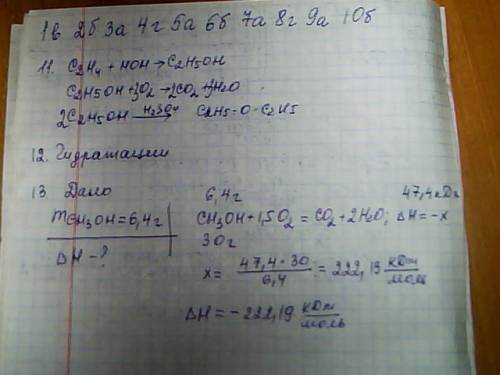 1в 2б 3а 4г 5а 6б 7а 8г 9а 10б
11. C₂H₄ + HOH → C₂H₅OH
C₂H₅OH + 3O₂ → 2CO₂ + 3H₂O
2C₂H₅OH H₂SO₄→ C₂H₅-O-C₂H5
12. Гидратации
13. Дано
6,4г 47,4 кДж
mCH₃OH = 6,4г CH₃OH + 1,5O₂ = CO₂ + 2H₂O; ΔH = -x
30г
ΔH - ?
x = 47,4 · 30 / 6,4 = 222,19 кДж/моль
ΔH = -222,19 кДж/моль